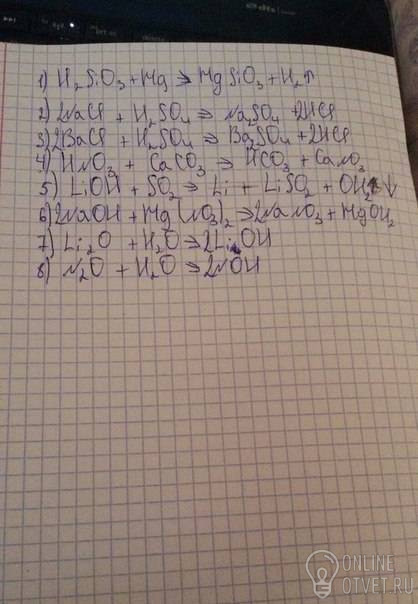 1) H₂SiO₃ + Mg ⇒ MgSiO₃ + H₂↑
2) 2NaCl + H₂SO₄ ⇒ Na₂SO₄ + 2HCl
3) 2BaCl + H₂SO₄ ⇒ Ba₂SO₄ + 2HCl
4) HNO₃ + CaCO₃ ⇒ HCO₃ + CaNO₃
5) LiOH + SO₂ ⇒ Li + LiSO₂ + OH₂ ↓
6) 2NaOH + Mg(NO₃)₂ ⇒ 2NaNO₃ + MgOH₂
7) Li₂O + H₂O ⇒ 2LiOH
8) N₂O + H₂O ⇒ 2NOH
ONLINE
OTVET.RU